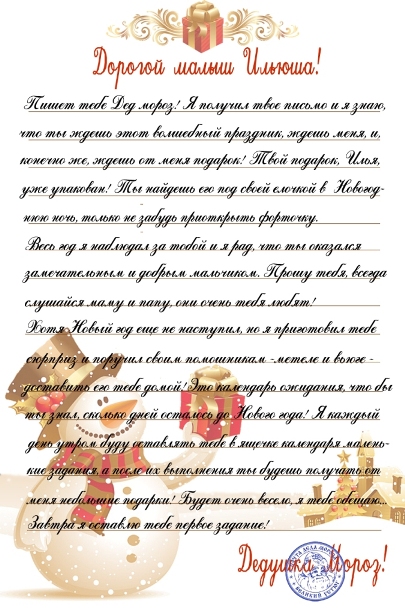 Дорогой малыш Ильюша!
Пишет тебе Дед мороз! Я получил твое письмо и я знаю,
что ты ждешь этот волшебный праздник, ждешь меня, и,
конечно же, ждешь от меня подарок! Твой подарок, Илья,
уже упакован! Ты найдешь его под своей елочкой в Новогод-
нюю ночь, только не забудь приоткрыть форточку.
Весь год я наблюдал за тобой и я рад, что ты оказался
замечательным и добрым мальчиком. Прошу тебя, всегда
слушайся маму и папу, они очень тебя любят!
Хотя Новый год еще не наступил, но я приготовил тебе
сюрприз и поручил своим помошникам -метеле и вьюге -
доставить его тебе домой! Это календарь ожидания, что бы
ты знал, сколько дней осталось до Нового года! Я каждый
день утром буду оставлять тебе в ящечке календаря малень-
кие задания, а после их выполнения ты будешь получать от
меня небольшие подарки! Будет очень весело, я тебе обещаю...
Завтра я оставлю тебе первое задание!
Дедушка Мороз!